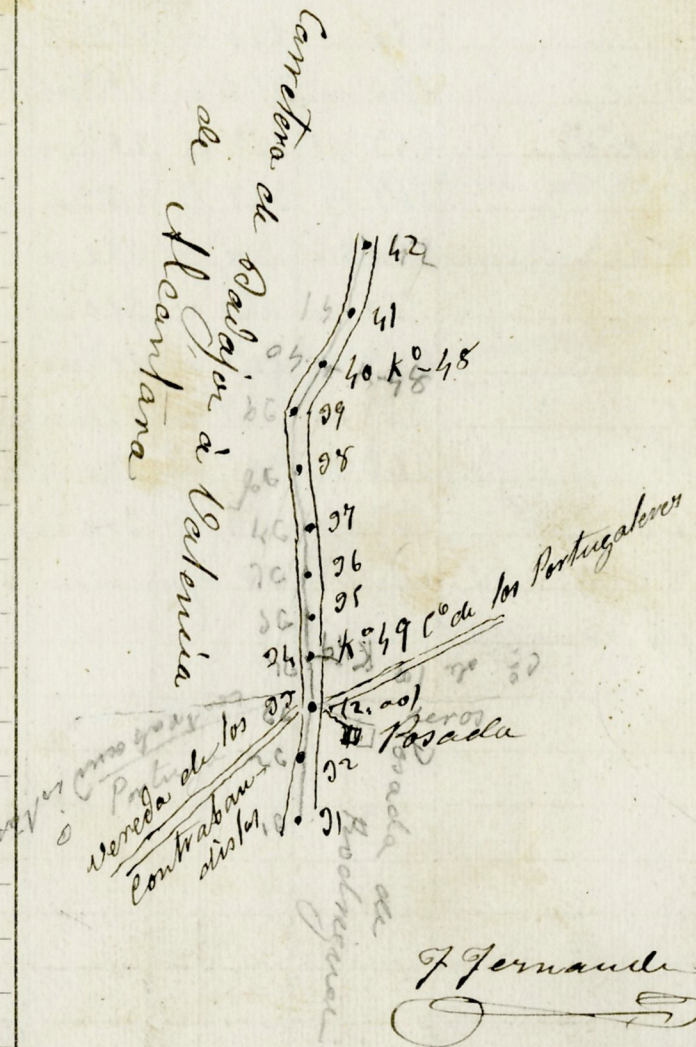 Carretera de Badajoz à Valencia
de Alcantara
42
41
40 Kº-48
39
38
37
36
35
34 Kº 49 Cº de los Portugaleros
33
Posada
32
31
vereda de los
Contraban-
distas
F Fernande